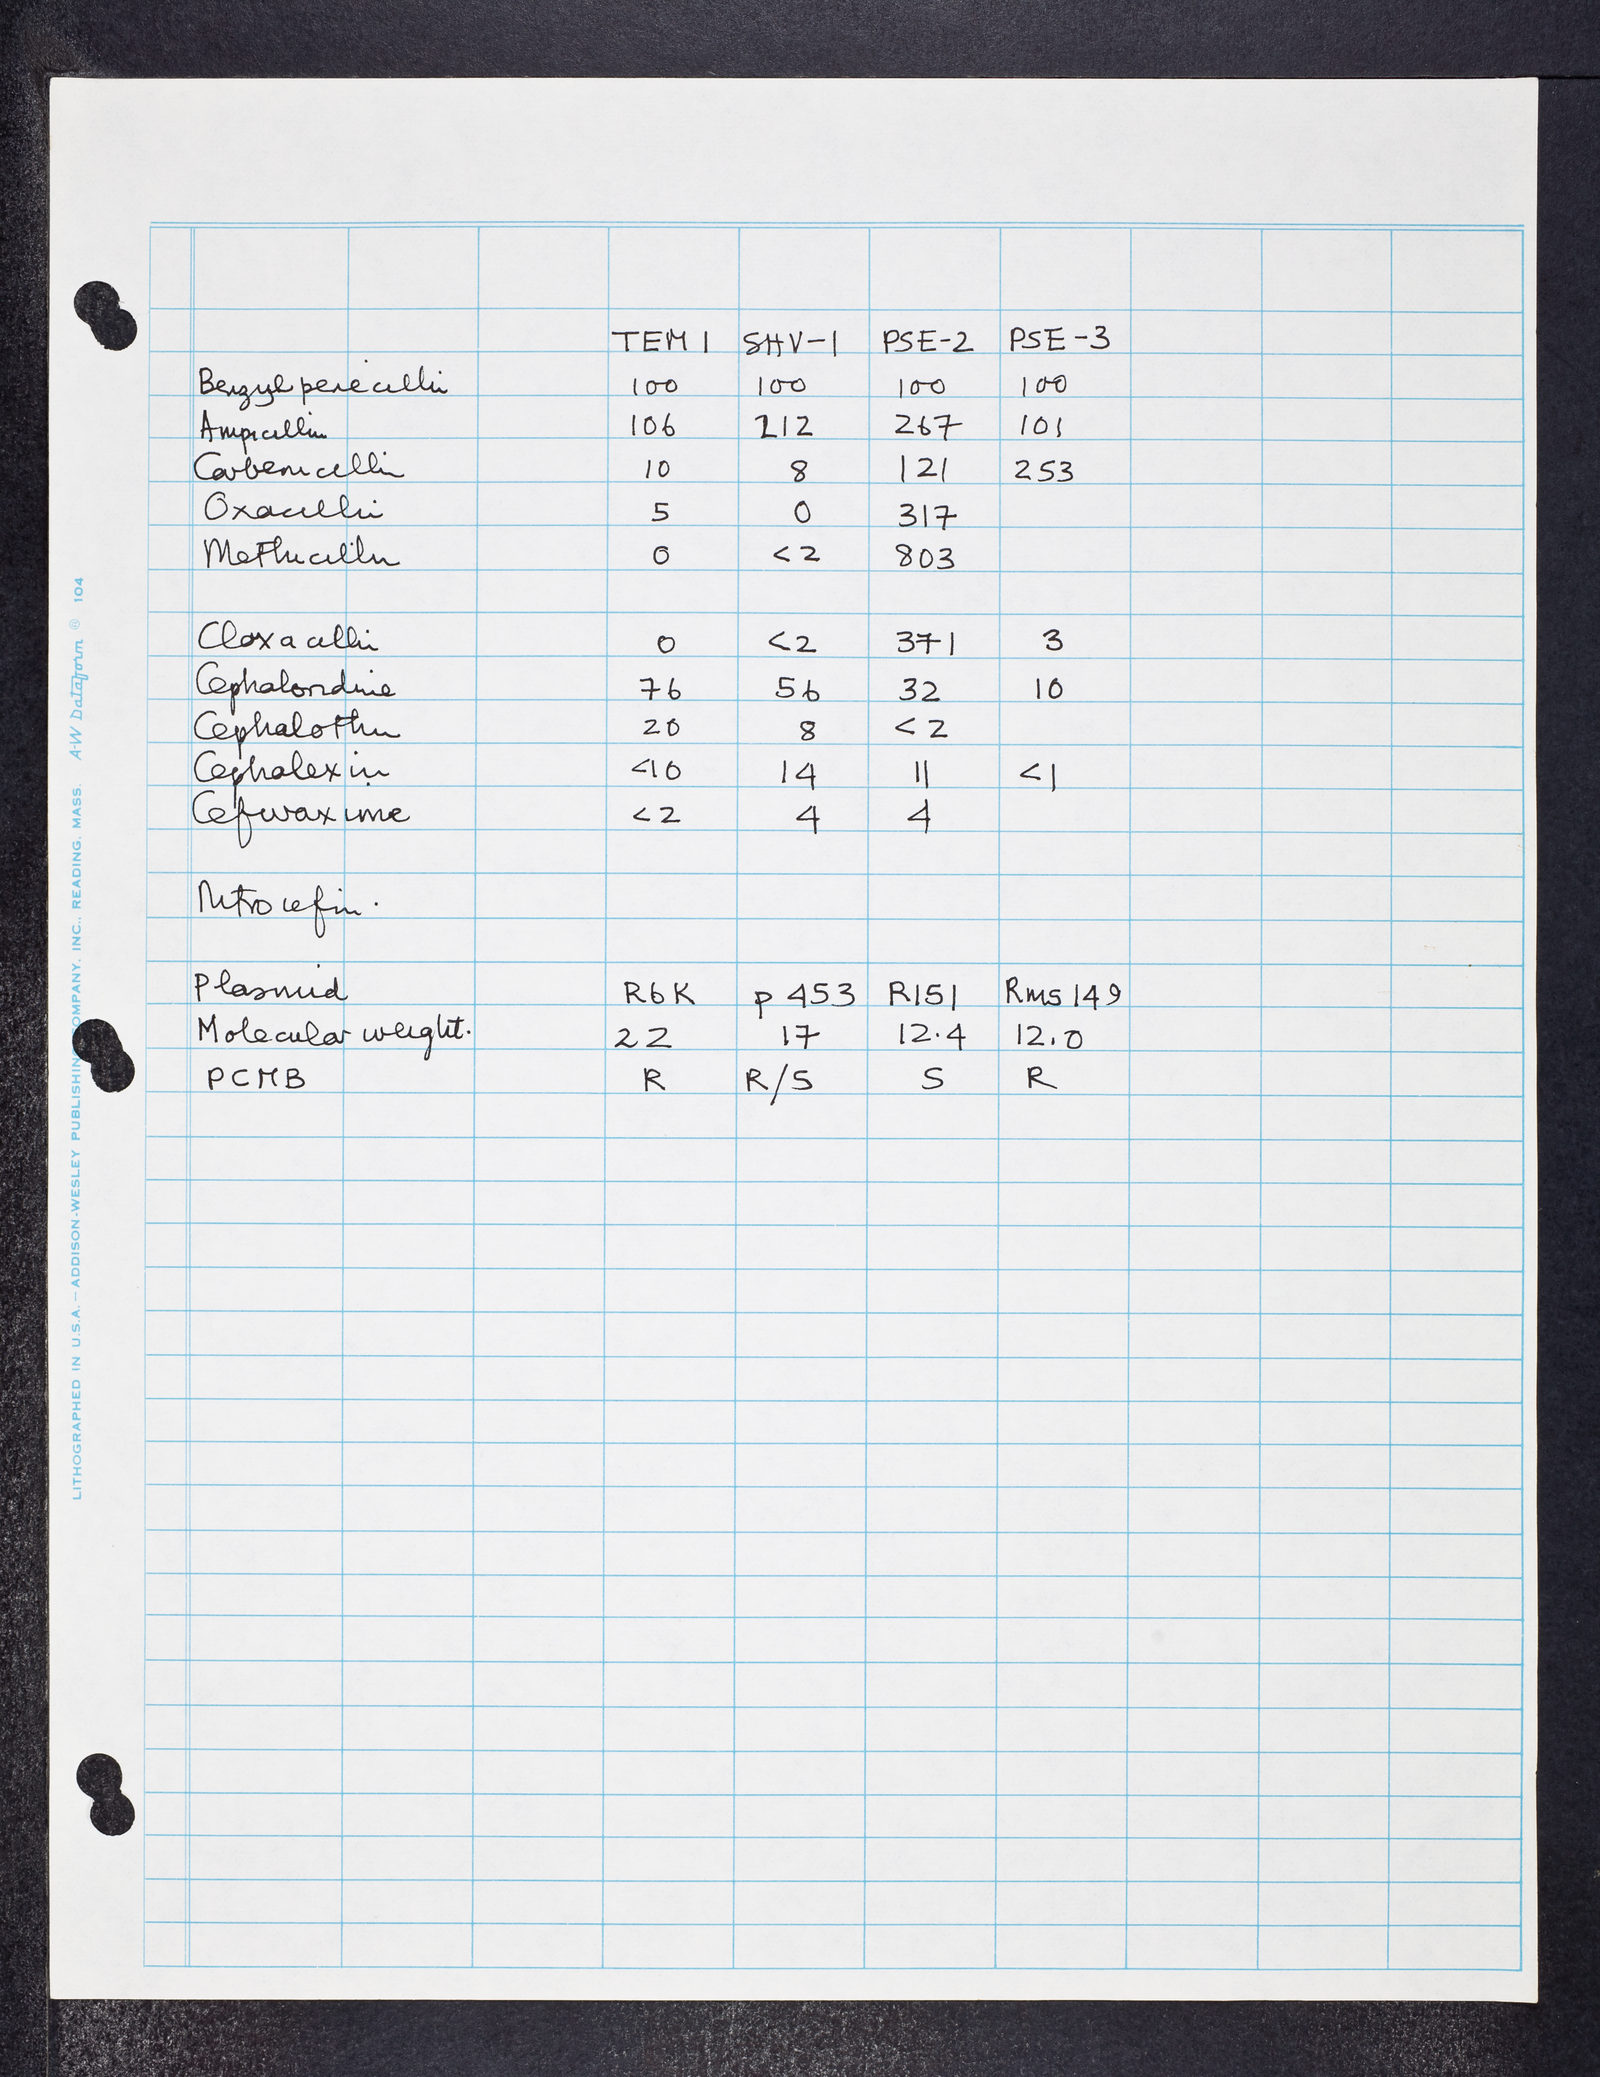 TEM 1 SHV-1 PSE-2 PSE-3
Benzylpenicillin 100 100 100 100
Ampicillin 106 212 267 101
Carbenicillin 10 8 121 253
Oxacillin 5 0 317
Methicillin 0 <2 803
Cloxacillin 0 <2 371 3
Cephaloridine 76 56 32 10
Cephalothin 20 8 <2
Cephalexin <10 14 11 <1
Cefuroxime <2 4 4
Nitrocefin.
Plasmid R6K p453 R151 Rms149
Molecular weight. 22 17 12.4 12.0
PCMB R R/S S R
LITHOGRAPHED IN U.S.A. — ADDISON-WESLEY PUBLISHING COMPANY, INC., READING, MASS. A-W Dataform ® 104